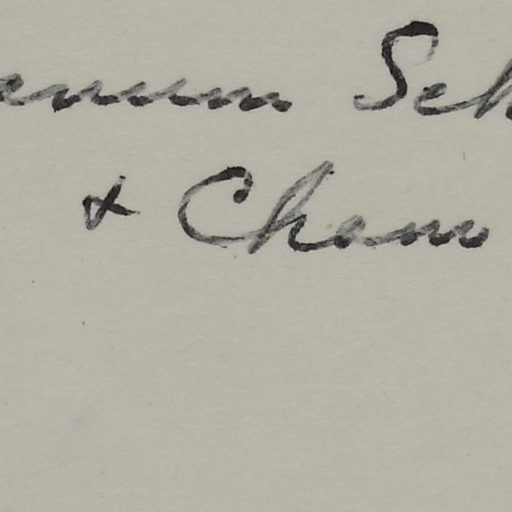 anum Sch
& Cham